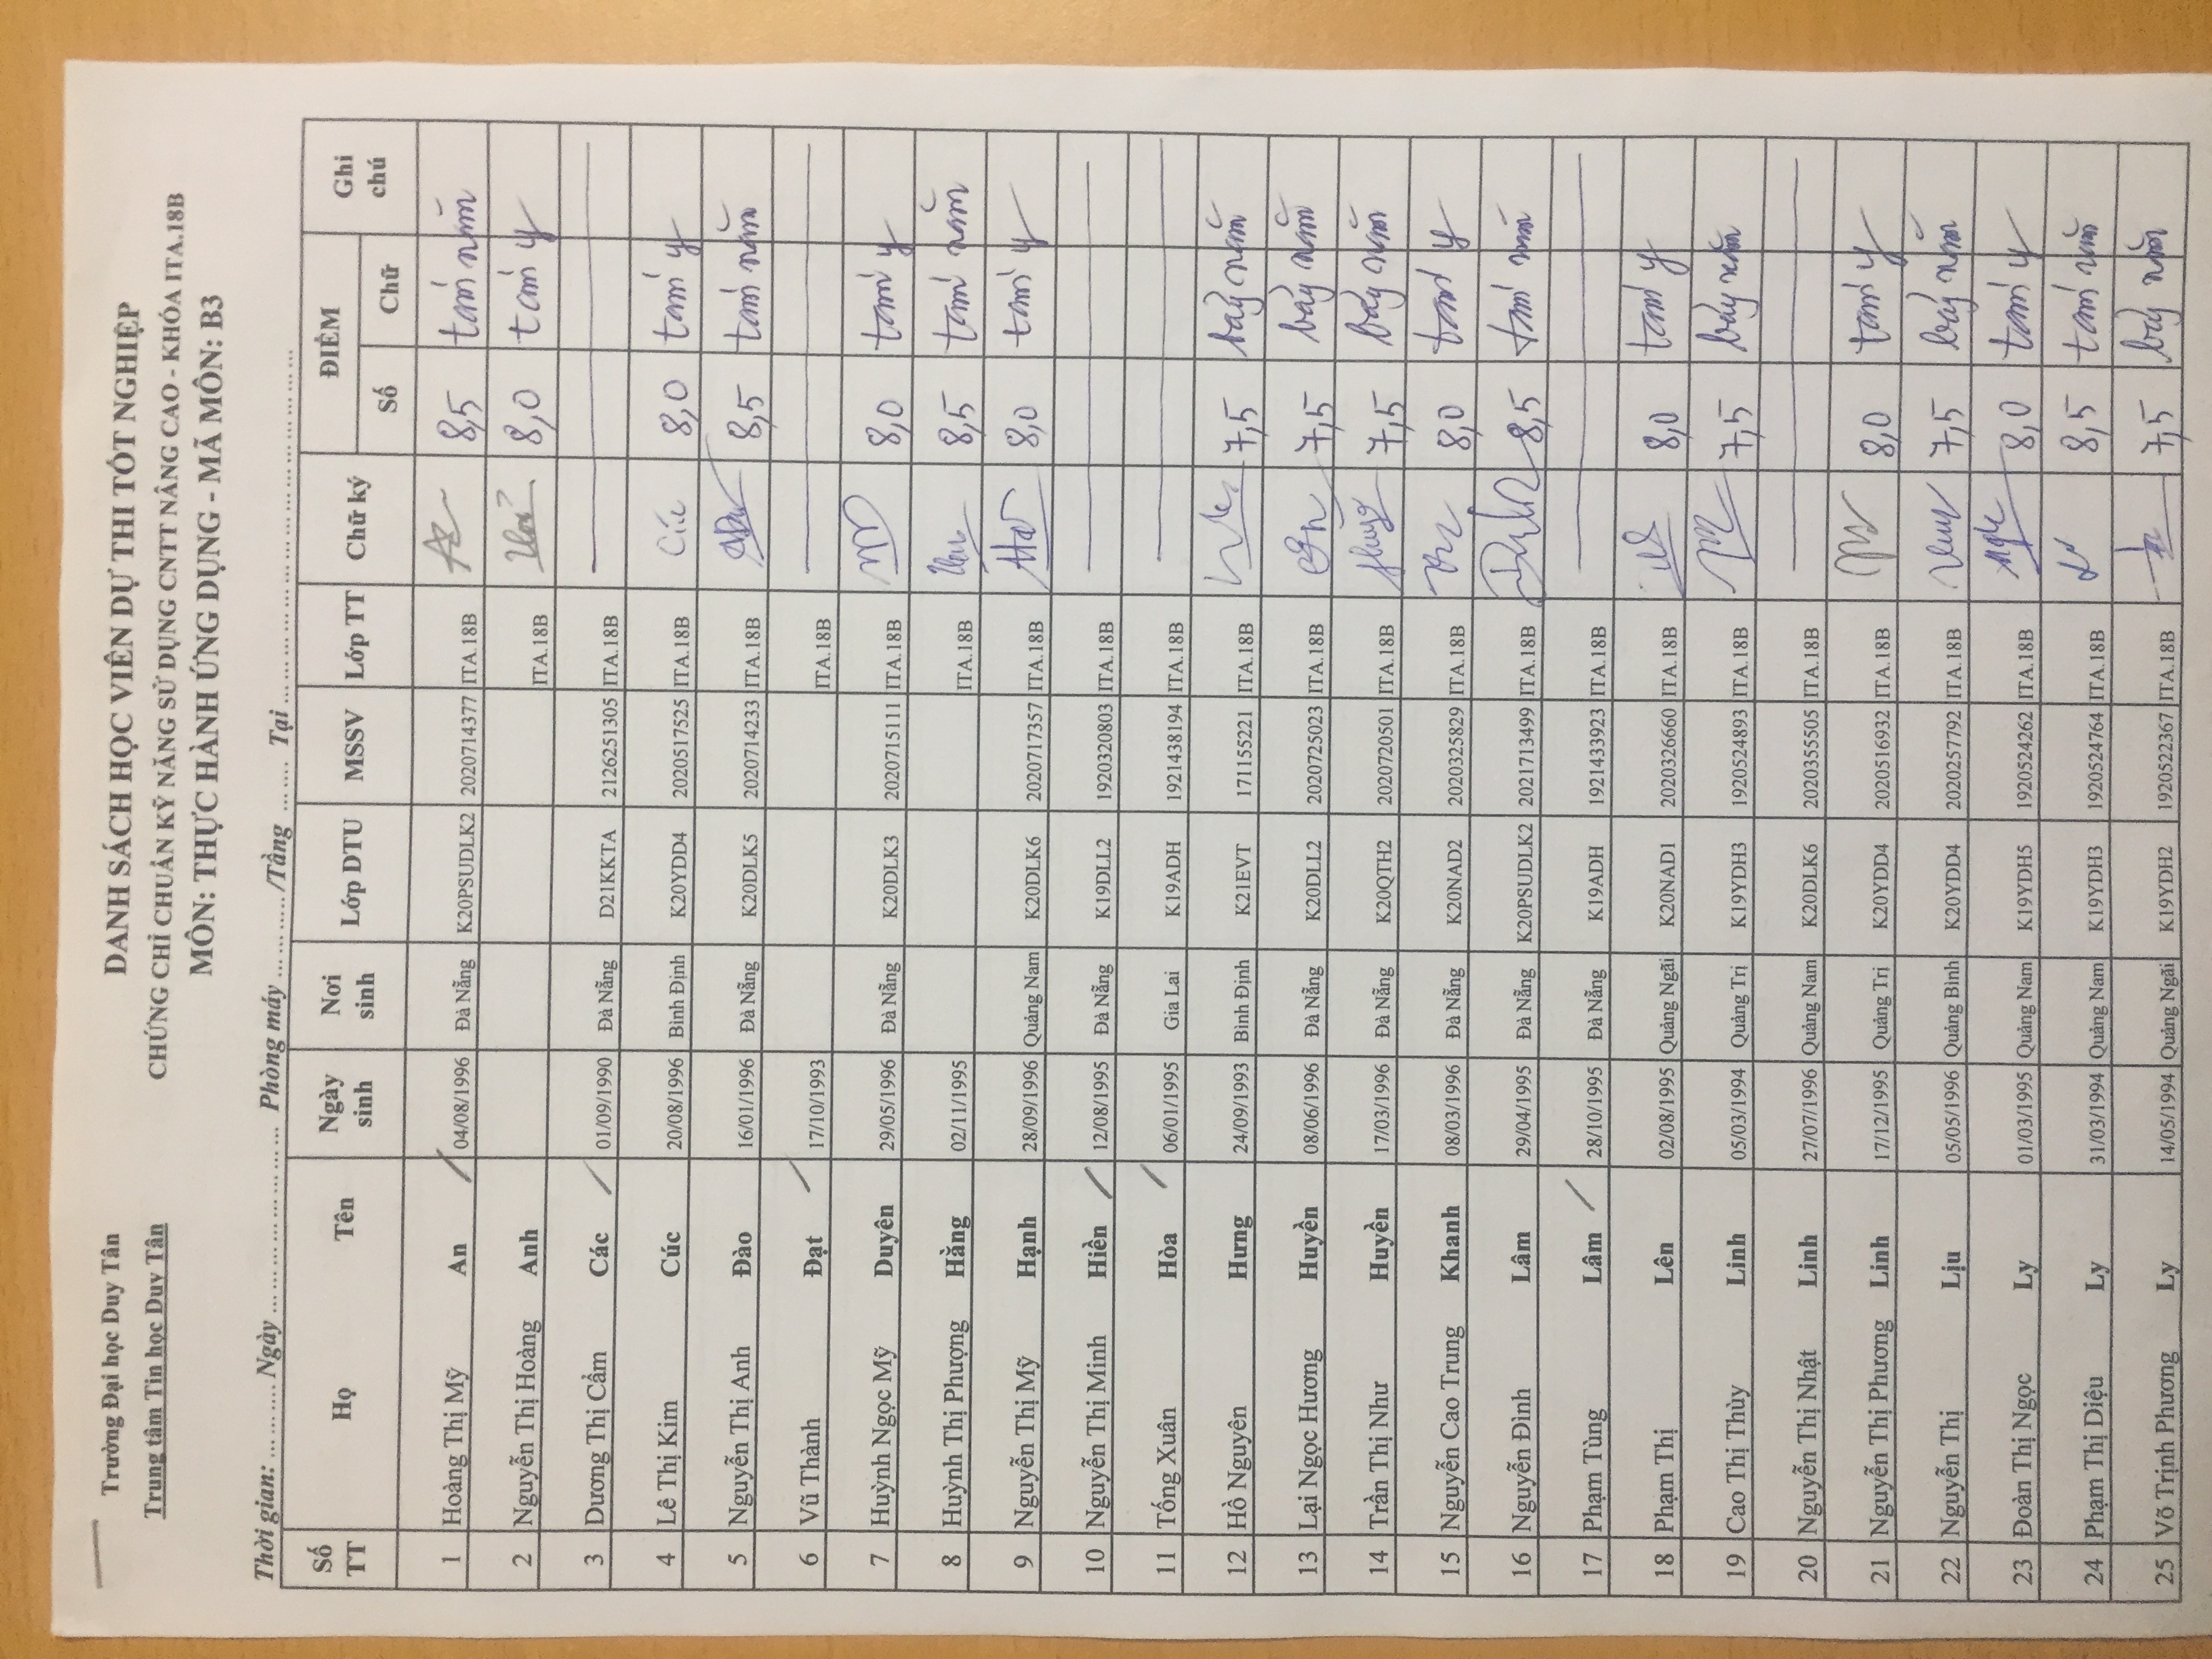 Trường Đại học Duy Tân
Trung tâm Tin học Duy Tân
DANH SÁCH HỌC VIÊN DỰ THI TỐT NGHIỆP
CHỨNG CHỈ CHUẨN KỸ NĂNG SỬ DỤNG CNTT NÂNG CAO - KHÓA ITA.18B
MÔN: THỰC HÀNH ỨNG DỤNG - MÃ MÔN: B3
Thời gian: ............ Ngày ........................ Phòng máy ............/Tầng ...... Tại ........................
Số TT Họ Tên Ngày sinh Nơi sinh Lớp DTU MSSV Lớp TT Chữ ký ĐIỂM Ghi chú
Số Chữ
1 Hoàng Thị Mỹ An 04/08/1996 Đà Nẵng K20PSUDLK2 2020714377 ITA.18B 8,5 tám năm
2 Nguyễn Thị Hoàng Anh ITA.18B 8,0 tám y
3 Dương Thị Cẩm Các 01/09/1990 Đà Nẵng D21KKTA 2126251305 ITA.18B
4 Lê Thị Kim Cúc 20/08/1996 Bình Định K20YDD4 2020517525 ITA.18B Cúc 8,0 tám y
5 Nguyễn Thị Anh Đào 16/01/1996 Đà Nẵng K20DLK5 2020714233 ITA.18B 8,5 tám năm
6 Vũ Thành Đạt 17/10/1993 ITA.18B
7 Huỳnh Ngọc Mỹ Duyên 29/05/1996 Đà Nẵng K20DLK3 2020715111 ITA.18B 8,0 tám y
8 Huỳnh Thị Phượng Hằng 02/11/1995 ITA.18B 8,5 tám năm
9 Nguyễn Thị Mỹ Hạnh 28/09/1996 Quảng Nam K20DLK6 2020717357 ITA.18B 8,0 tám y
10 Nguyễn Thị Minh Hiền 12/08/1995 Đà Nẵng K19DLL2 1920320803 ITA.18B
11 Tống Xuân Hòa 06/01/1995 Gia Lai K19ADH 1921438194 ITA.18B
12 Hồ Nguyên Hưng 24/09/1993 Bình Định K21EVT 171155221 ITA.18B 7,5 bảy năm
13 Lại Ngọc Hương Huyền 08/06/1996 Đà Nẵng K20DLL2 2020725023 ITA.18B 7,5 bảy năm
14 Trần Thị Như Huyền 17/03/1996 Đà Nẵng K20QTH2 2020720501 ITA.18B 7,5 bảy năm
15 Nguyễn Cao Trung Khanh 08/03/1996 Đà Nẵng K20NAD2 2020325829 ITA.18B 8,0 tám y
16 Nguyễn Đình Lâm 29/04/1995 Đà Nẵng K20PSUDLK2 2021713499 ITA.18B 8,5 tám năm
17 Phạm Tùng Lâm 28/10/1995 Đà Nẵng K19ADH 1921433923 ITA.18B
18 Phạm Thị Lên 02/08/1995 Quảng Ngãi K20NAD1 2020326660 ITA.18B 8,0 tám y
19 Cao Thị Thùy Linh 05/03/1994 Quảng Trị K19YDH3 1920524893 ITA.18B 7,5 bảy năm
20 Nguyễn Thị Nhật Linh 27/07/1996 Quảng Nam K20DLK6 2020355505 ITA.18B
21 Nguyễn Thị Phương Linh 17/12/1995 Quảng Trị K20YDD4 2020516932 ITA.18B 8,0 tám y
22 Nguyễn Thị Lịu 05/05/1996 Quảng Bình K20YDD4 2020257792 ITA.18B 7,5 bảy năm
23 Đoàn Thị Ngọc Ly 01/03/1995 Quảng Nam K19YDH5 1920524262 ITA.18B 8,0 tám y
24 Phạm Thị Diệu Ly 31/03/1994 Quảng Nam K19YDH3 1920524764 ITA.18B 8,5 tám năm
25 Võ Trịnh Phương Ly 14/05/1994 Quảng Ngãi K19YDH2 1920522367 ITA.18B 7,5 bảy năm